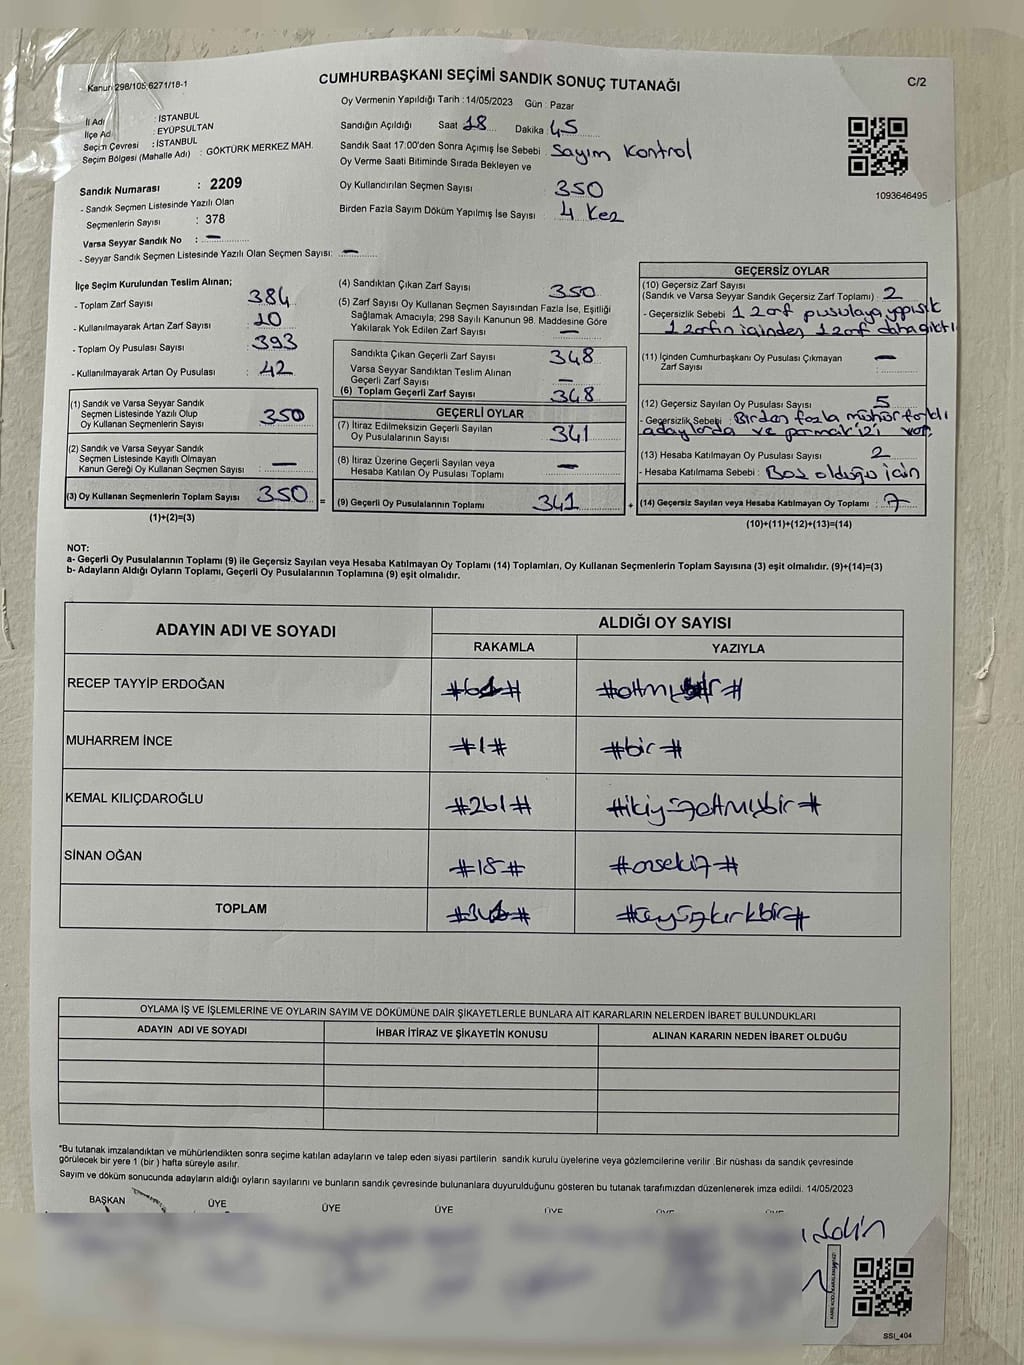 Kanun 298/105 6271/18-1
CUMHURBAŞKANI SEÇİMİ SANDIK SONUÇ TUTANAĞI
C/2
İl Adı : İSTANBUL
İlçe Adı : EYÜPSULTAN
Seçim Çevresi : İSTANBUL
Seçim Bölgesi (Mahalle Adı) : GÖKTÜRK MERKEZ MAH.
Sandık Numarası : 2209
- Sandık Seçmen Listesinde Yazılı Olan
Seçmenlerin Sayısı : 378
Varsa Seyyar Sandık No : —
- Seyyar Sandık Seçmen Listesinde Yazılı Olan Seçmen Sayısı: —
Oy Vermenin Yapıldığı Tarih : 14/05/2023 Gün : Pazar
Sandığın Açıldığı Saat 18 Dakika 45
Sandık Saat 17:00'den Sonra Açımış İse Sebebi Sayım Kontrol
Oy Verme Saati Bitiminde Sırada Bekleyen ve
Oy Kullandırılan Seçmen Sayısı 350
Birden Fazla Sayım Döküm Yapılmış İse Sayısı 4 kez
1093646495
İlçe Seçim Kurulundan Teslim Alınan;
- Toplam Zarf Sayısı : 384
- Kullanılmayarak Artan Zarf Sayısı : 20
- Toplam Oy Pusulası Sayısı : 393
- Kullanılmayarak Artan Oy Pusulası : 42
(1) Sandık ve Varsa Seyyar Sandık
Seçmen Listesinde Yazılı Olup
Oy Kullanan Seçmenlerin Sayısı : 350
(2) Sandık ve Varsa Seyyar Sandık
Seçmen Listesinde Kayıtlı Olmayan
Kanun Gereği Oy Kullanan Seçmen Sayısı : —
(3) Oy Kullanan Seçmenlerin Toplam Sayısı : 350 =
(1)+(2)=(3)
(4) Sandıktan Çıkan Zarf Sayısı : 350
(5) Zarf Sayısı Oy Kullanan Seçmen Sayısından Fazla İse, Eşitliği
Sağlamak Amacıyla; 298 Sayılı Kanunun 98. Maddesine Göre
Yakılarak Yok Edilen Zarf Sayısı : —
Sandıkta Çıkan Geçerli Zarf Sayısı : 348
Varsa Seyyar Sandıktan Teslim Alınan
Geçerli Zarf Sayısı : —
(6) Toplam Geçerli Zarf Sayısı : 348
GEÇERLİ OYLAR
(7) İtiraz Edilmeksizin Geçerli Sayılan
Oy Pusulalarının Sayısı : 341
(8) İtiraz Üzerine Geçerli Sayılan veya
Hesaba Katılan Oy Pusulası Toplamı : —
(9) Geçerli Oy Pusulalarının Toplamı : 341 +
GEÇERSİZ OYLAR
(10) Geçersiz Zarf Sayısı
(Sandık ve Varsa Seyyar Sandık Geçersiz Zarf Toplamı) : 2
- Geçersizlik Sebebi : 1 zarf pusulaya yapışık
1 zarfın içinden 1 zarf daha çıktı
(11) İçinden Cumhurbaşkanı Oy Pusulası Çıkmayan
Zarf Sayısı : —
(12) Geçersiz Sayılan Oy Pusulası Sayısı : 5
- Geçersizlik Sebebi : Birden fazla mühür farklı
adaylarda ve parmak izi var.
(13) Hesaba Katılmayan Oy Pusulası Sayısı : 2
- Hesaba Katılmama Sebebi : Boş olduğu için
(14) Geçersiz Sayılan veya Hesaba Katılmayan Oy Toplamı : 7
(10)+(11)+(12)+(13)=(14)
NOT:
a- Geçerli Oy Pusulalarının Toplamı (9) ile Geçersiz Sayılan veya Hesaba Katılmayan Oy Toplamı (14) Toplamları, Oy Kullanan Seçmenlerin Toplam Sayısına (3) eşit olmalıdır. (9)+(14)=(3)
b- Adayların Aldığı Oyların Toplamı, Geçerli Oy Pusulalarının Toplamına (9) eşit olmalıdır.
ADAYIN ADI VE SOYADI
ALDIĞI OY SAYISI
RAKAMLA YAZIYLA
RECEP TAYYİP ERDOĞAN #61# #altmışbir#
MUHARREM İNCE #1# #bir#
KEMAL KILIÇDAROĞLU #261# #ikiyüzaltmışbir#
SİNAN OĞAN #18# #onsekiz#
TOPLAM #341# #üçyüzkırkbir#
OYLAMA İŞ VE İŞLEMLERİNE VE OYLARIN SAYIM VE DÖKÜMÜNE DAİR ŞİKAYETLERLE BUNLARA AİT KARARLARIN NELERDEN İBARET BULUNDUKLARI
ADAYIN ADI VE SOYADI İHBAR İTİRAZ VE ŞİKAYETİN KONUSU ALINAN KARARIN NEDEN İBARET OLDUĞU
*Bu tutanak imzalandıktan ve mühürlendikten sonra seçime katılan adayların ve talep eden siyasi partilerin sandık kurulu üyelerine veya gözlemcilerine verilir .Bir nüshası da sandık çevresinde
görülecek bir yere 1 (bir ) hafta süreyle asılır.
Sayım ve döküm sonucunda adayların aldığı oyların sayılarını ve bunların sandık çevresinde bulunanlara duyurulduğunu gösteren bu tutanak tarafımızdan düzenlenerek imza edildi. 14/05/2023
BAŞKAN ÜYE ÜYE ÜYE ÜYE ÜYE ÜYE
SSI_404